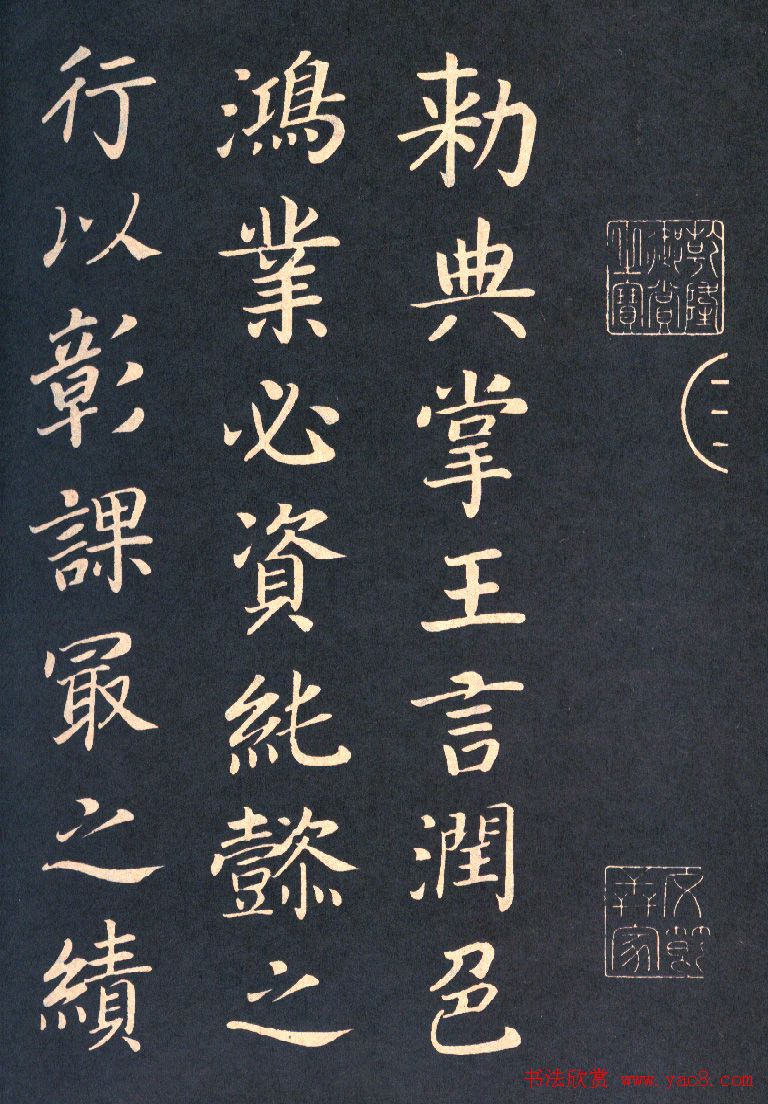 乾隆
御賞
之寶
勑典掌王言潤色
鴻業必資純懿之
行以彰課最之績
书法欣赏 www.yac8.com